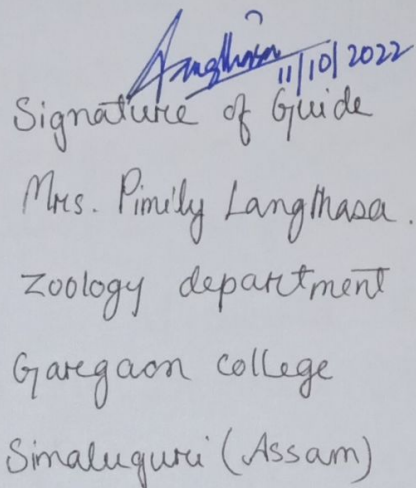 11/10/2022
Signature of Guide
Mrs. Pimily Langthasa.
Zoology department
Gargaon college
Simaluguri (Assam)